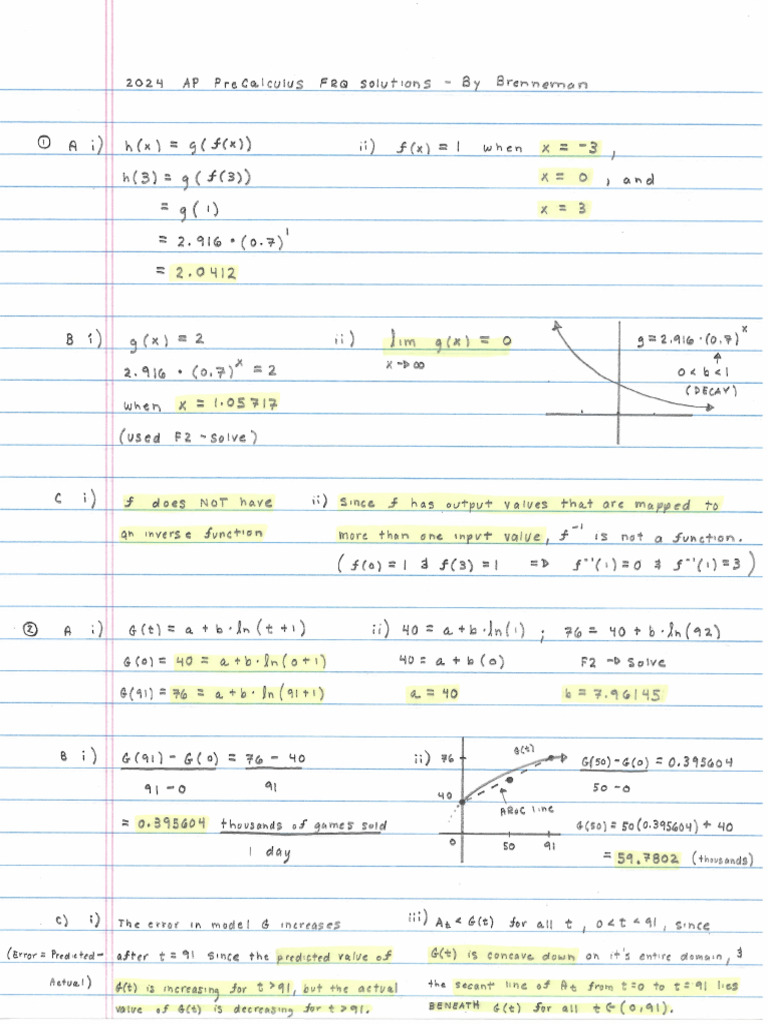 2024 AP PreCalculus FRQ Solutions - By Brenneman
① A i) h(x) = g(f(x))
h(3) = g(f(3))
= g(1)
= 2.916 • (0.7)¹
= 2.0412
ii) f(x) = 1 when x = -3,
x = 0, and
x = 3
B i) g(x) = 2
2.916 • (0.7)ˣ = 2
when x = 1.05717
(used F2 - Solve)
ii) lim g(x) = 0
x → ∞
g = 2.916 · (0.7)ˣ
↑
0 < b < 1
(DECAY)
C i) f does NOT have
an inverse function
ii) Since f has output values that are mapped to
more than one input value, f⁻¹ is not a function.
(f(0) = 1 & f(3) = 1 ⇒ f⁻¹(1) = 0 & f⁻¹(1) = 3)
② A i) G(t) = a + b · ln(t + 1)
G(0) = 40 = a + b · ln(0+1)
G(91) = 76 = a + b · ln(91+1)
ii) 40 = a + b · ln(1) ; 76 = 40 + b · ln(92)
40 = a + b(0) F2 → Solve
a = 40 b = 7.96145
B i) G(91) - G(0) = 76 - 40
91 - 0 91
= 0.395604 thousands of games sold
1 day
ii) 76
G(t)
40
AROC line
0 50 91
G(50) - G(0) = 0.395604
50 - 0
G(50) = 50(0.395604) + 40
= 59.7802 (thousands)
C) i) The error in model G increases
(Error = Predicted - after t = 91 since the predicted value of
Actual) G(t) is increasing for t > 91, but the actual
value of G(t) is decreasing for t > 91.
iii) At < G(t) for all t, 0 < t < 91, since
G(t) is concave down on it's entire domain, &
the secant line of At from t=0 to t=91 lies
BENEATH G(t) for all t ∈ (0,91).